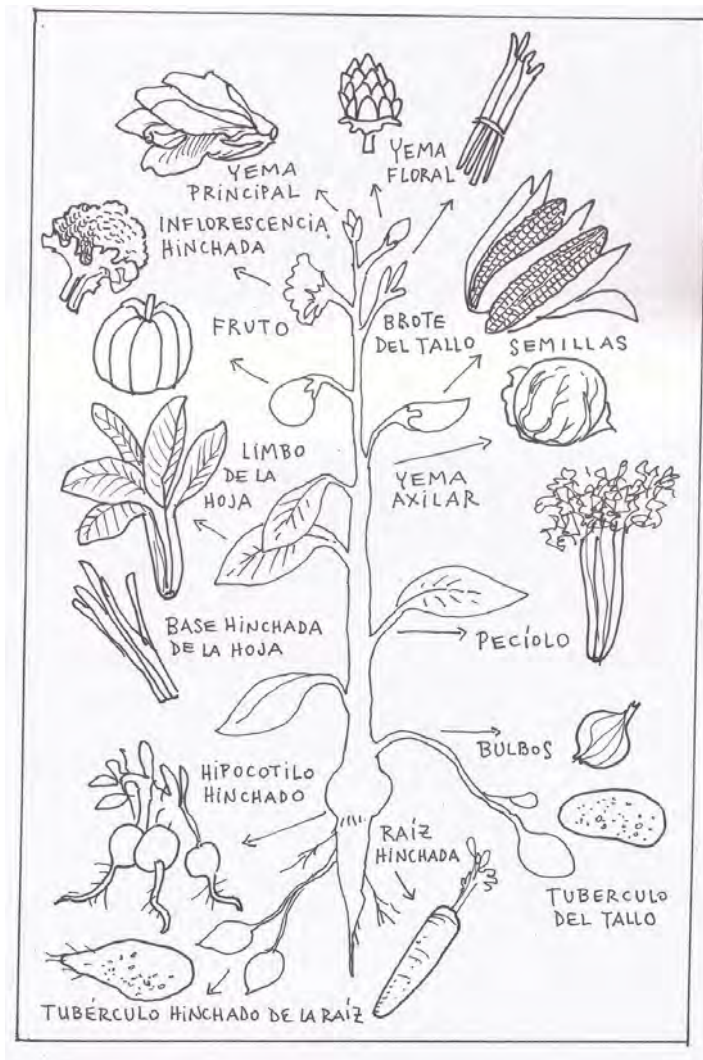 YEMA
PRINCIPAL
YEMA
FLORAL
INFLORESCENCIA
HINCHADA
FRUTO
BROTE
DEL TALLO
SEMILLAS
LIMBO
DE LA
HOJA
YEMA
AXILAR
BASE HINCHADA
DE LA HOJA
PECÍOLO
BULBOS
HIPOCOTILO
HINCHADO
RAÍZ
HINCHADA
TUBERCULO
DEL TALLO
TUBÉRCULO HINCHADO DE LA RAÍZ